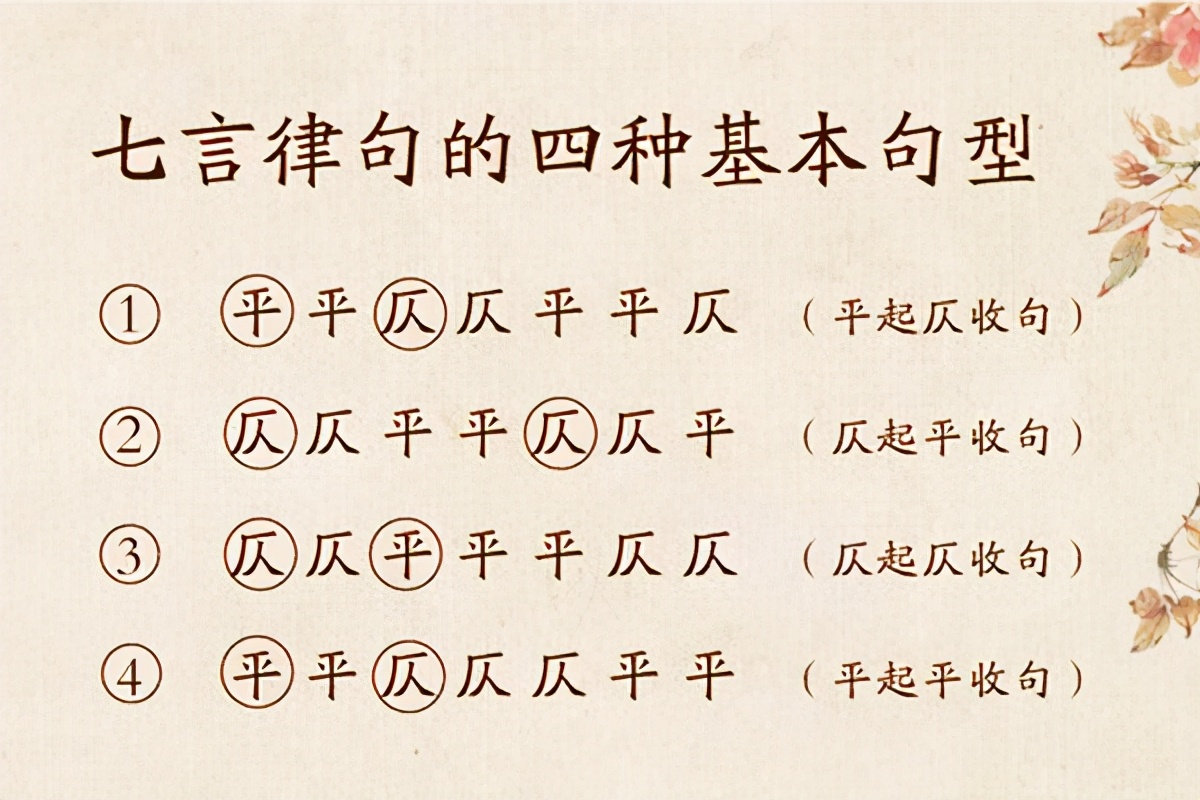 七言律句的四种基本句型
① 平平仄仄平平仄 (平起仄收句)
② 仄仄平平仄仄平 (仄起平收句)
③ 仄仄平平平仄仄 (仄起仄收句)
④ 平平仄仄仄平平 (平起平收句)